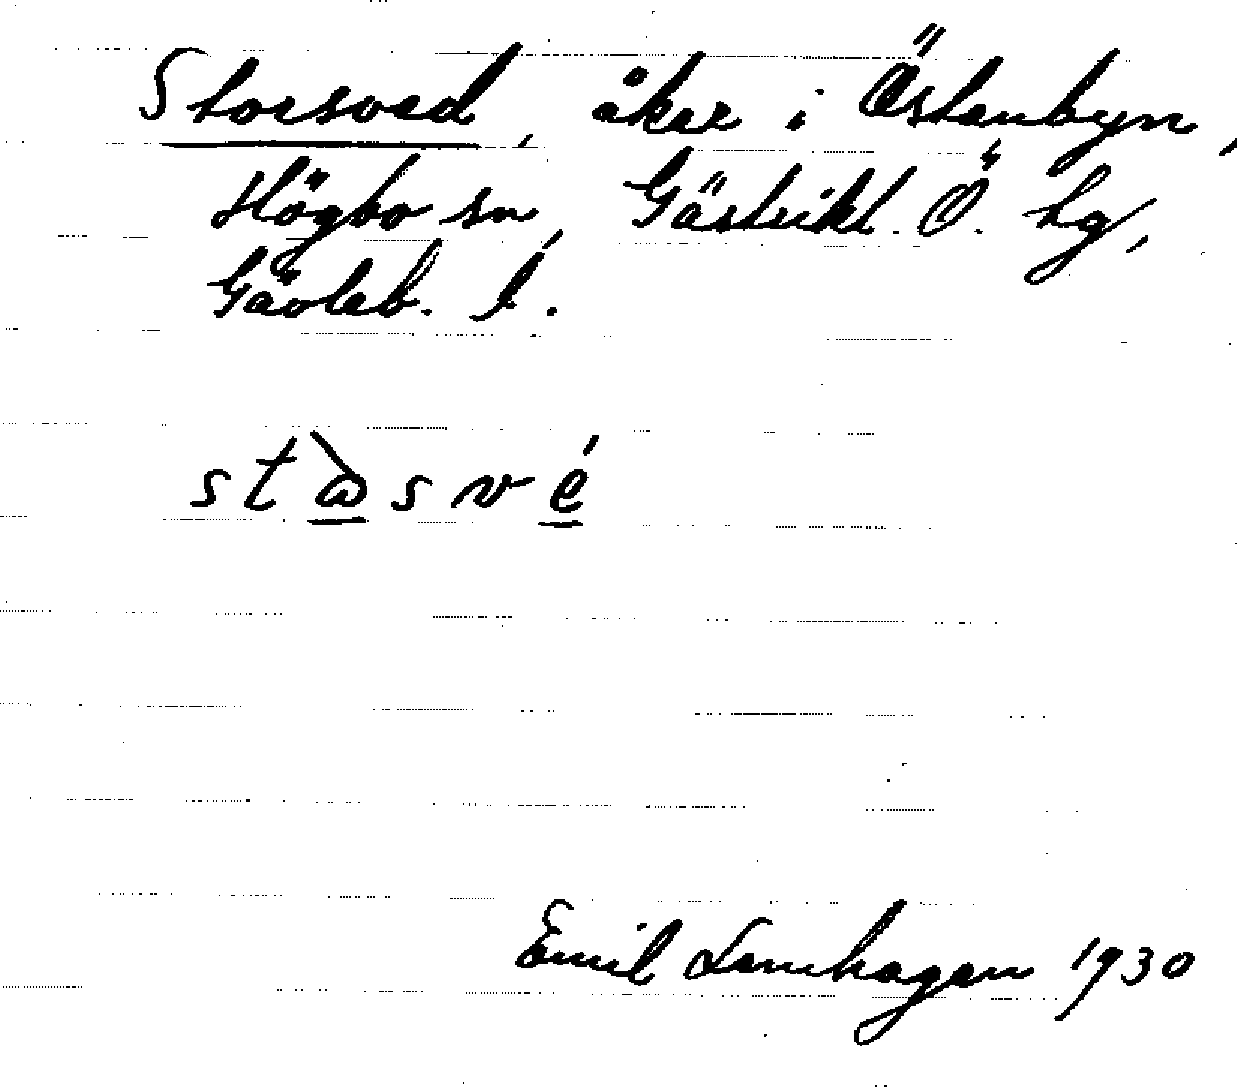 Storsved, åker i Östanbyn,
Högbo sn, Gästrikl. Ö. hg,
Gävleb. l.
Emil Lannhagen 1930